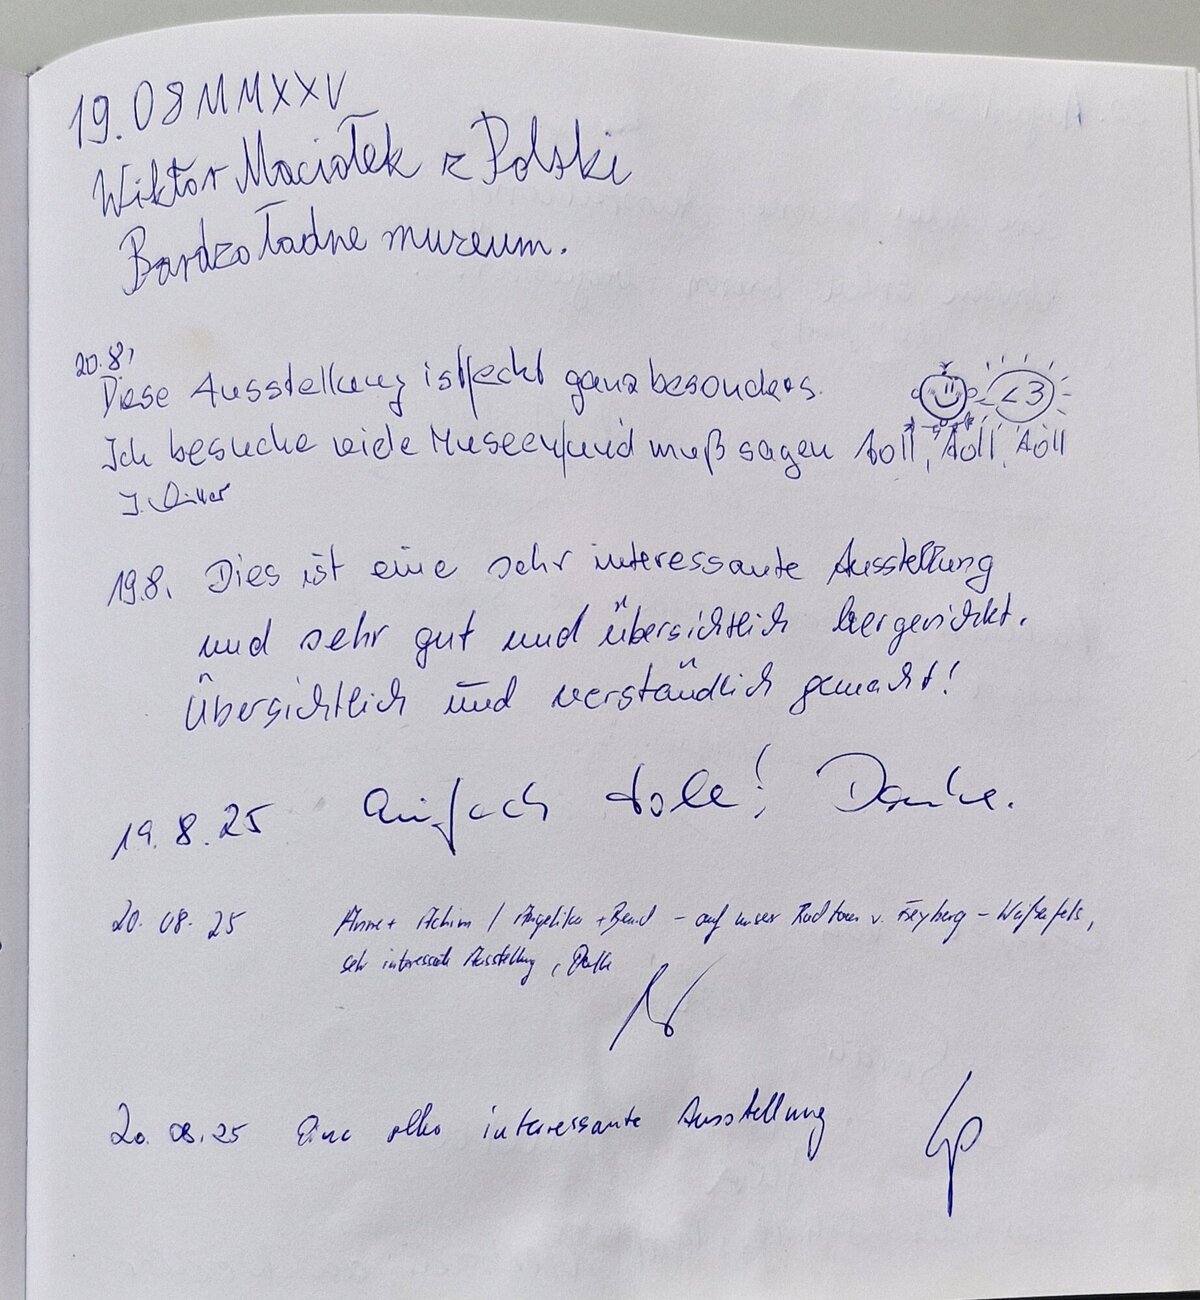 19.08 MMXXV
Wiktor Maciołek z Polski
Bardzo ładne muzeum.
20.8.
Diese Ausstellung ist echt ganz besonders.
<3
Ich besuche viele Museen und muß sagen toll, toll, toll
J.
19.8. Dies ist eine sehr interessante Ausstellung
und sehr gut und übersichtlich hergerichtet.
Übersichtlich und verständlich gemacht!
19.8.25 Einfach tolle! Danke.
20.08.25 Anne + Achim / Angelika + Bernd – auf unser Radtour v. Freyburg – Weißenfels,
sehr interessante Ausstellung,
20.08.25 Eine interessante Ausstellung